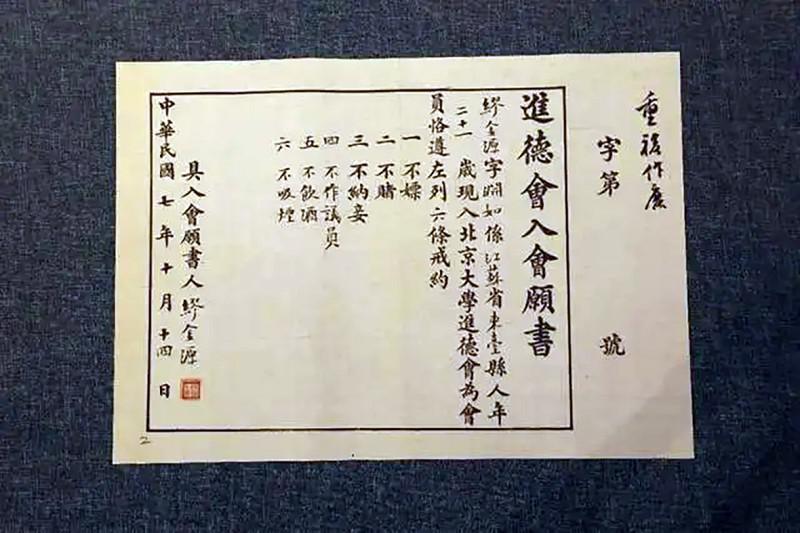 重複作廢
字第　　號
進德會入會願書
繆金源字淵如係江蘇省東臺縣人年
二十一歲現入北京大學進德會為會
員恪遵左列六條戒約
一　不嫖
二　不賭
三　不納妾
四　不作議員
五　不飲酒
六　不吸煙
具入會願書人繆金源
中華民國七年十月十四日
2